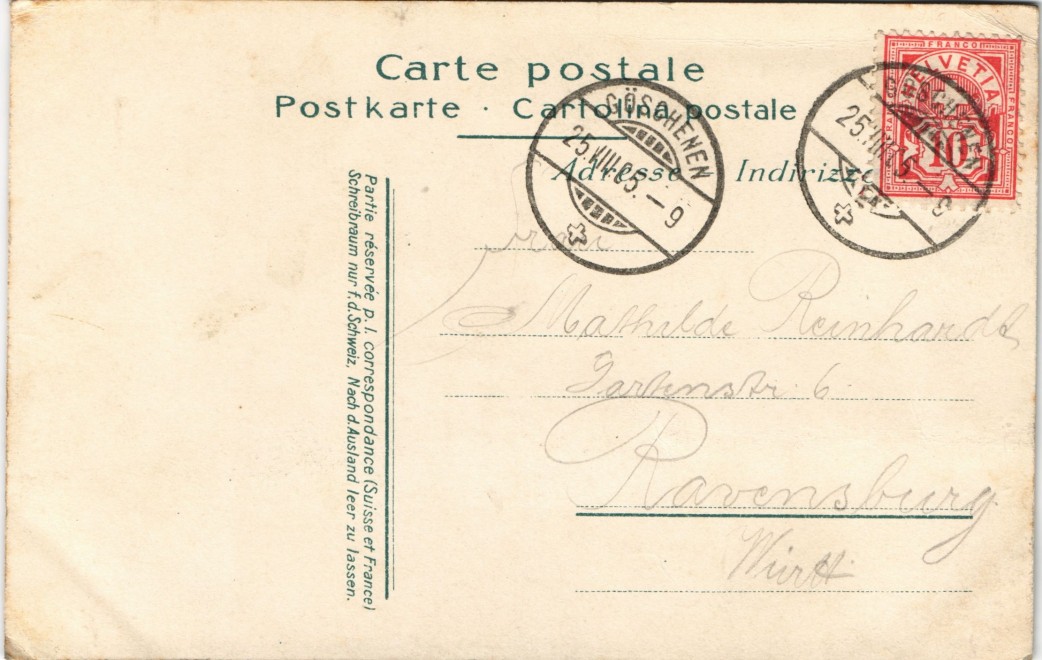 Carte postale
Postkarte · Cartolina postale
Adresse Indirizzo
FRANCO
HELVETIA
FRANCO
FRANCO
10
GÖSCHENEN
25.VIII.05.–9
GÖSCHENEN
25.VIII.05.–9
Partie réservée p. l. correspondance (Suisse et France)
Schreibraum nur f. d. Schweiz. Nach d. Ausland leer zu lassen.
Frau
Mathilde Reinhardt
Gartenstr. 6.
Ravensburg
Württ.